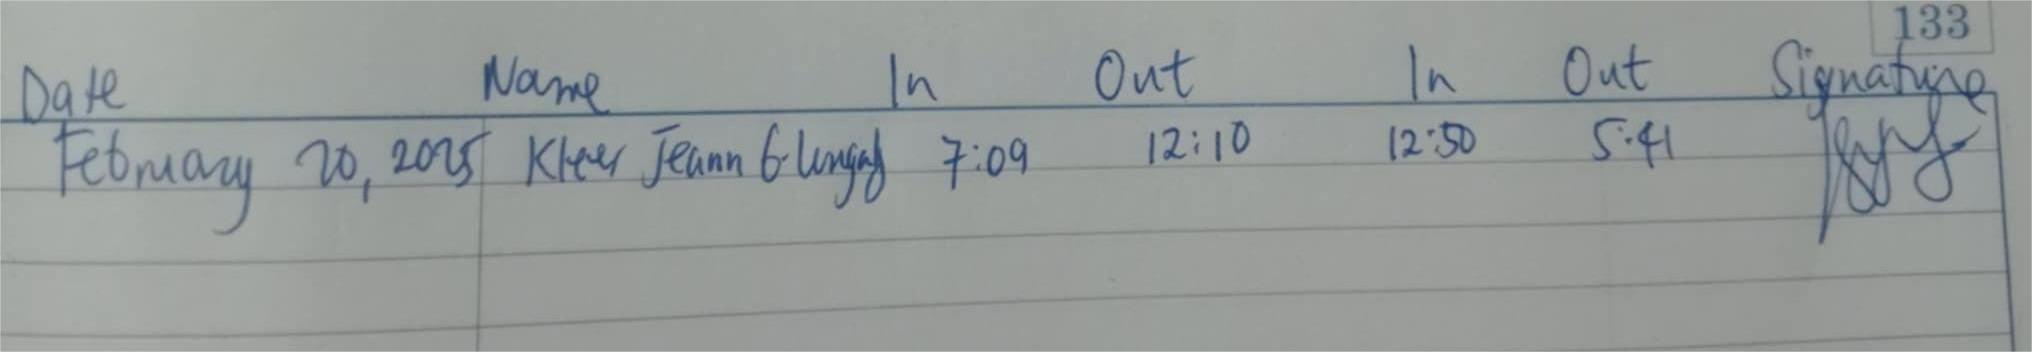 133
Date Name In Out In Out Signature
February 20, 2025 Jeann G. 7:09 12:10 12:50 5:41